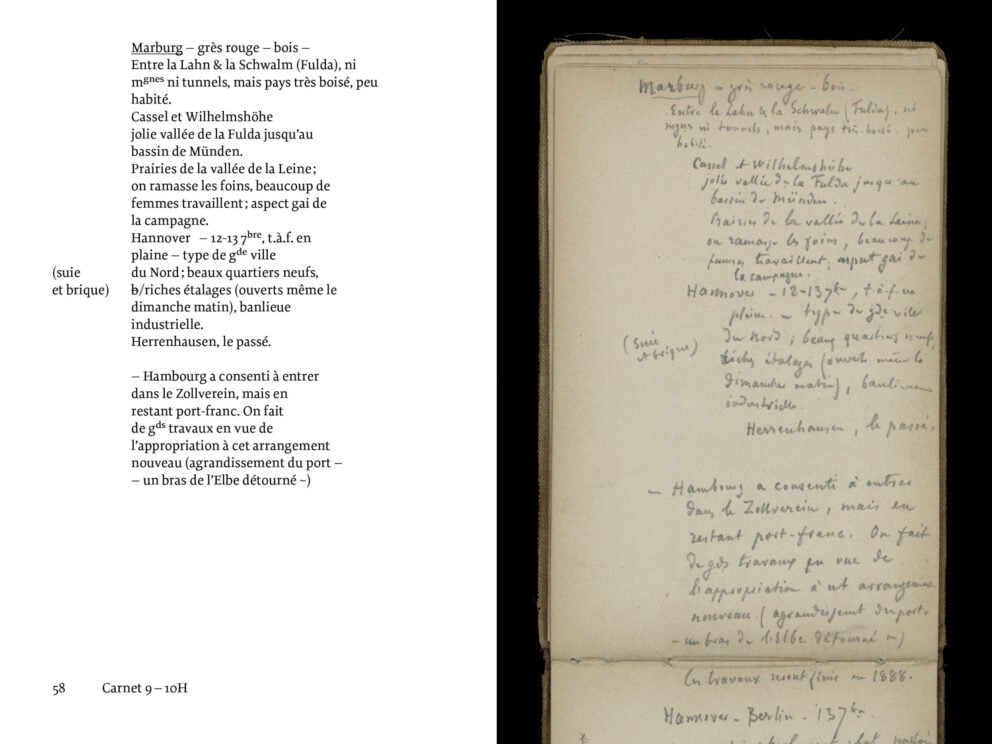 Marburg – grès rouge – bois –
Entre la Lahn & la Schwalm (Fulda), ni
mgnes ni tunnels, mais pays très boisé, peu
habité.
Cassel et Wilhelmshöhe
jolie vallée de la Fulda jusqu’au
bassin de Münden.
Prairies de la vallée de la Leine ;
on ramasse les foins, beaucoup de
femmes travaillent ; aspect gai de
la campagne.
Hannover – 12-13 7bre, t.à.f. en
plaine – type de gde ville
(suie du Nord ; beaux quartiers neufs,
et brique) b/riches étalages (ouverts même le
dimanche matin), banlieue
industrielle.
Herrenhausen, le passé.
– Hambourg a consenti à entrer
dans le Zollverein, mais en
restant port-franc. On fait
de gds travaux en vue de
l’appropriation à cet arrangement
nouveau (agrandissement du port –
– un bras de l’Elbe détourné ~)
58 Carnet 9 – 10H
Marburg – grès rouge – bois –
Entre la Lahn & la Schwalm (Fulda), ni
mgnes ni tunnels, mais pays très boisé, peu
habité.
Cassel et Wilhelmshöhe
jolie vallée de la Fulda jusqu'au
bassin de Münden.
Prairies de la vallée de la Leine ;
on ramasse les foins, beaucoup de
femmes travaillent ; aspect gai de
la campagne.
Hannover – 12-13 7bre, t.à.f. en
plaine – type de gde ville
(suie et brique) du Nord ; beaux quartiers neufs,
riches étalages (ouverts même le
dimanche matin), banlieue
industrielle.
Herrenhausen, le passé.
– Hambourg a consenti à entrer
dans le Zollverein, mais en
restant port-franc. On fait
de gds travaux en vue de
l'appropriation à cet arrangement
nouveau (agrandissement du port –
– un bras de l'Elbe détourné ~)
les travaux seront finis en 1888.
Hannover – Berlin. 13 7bre.